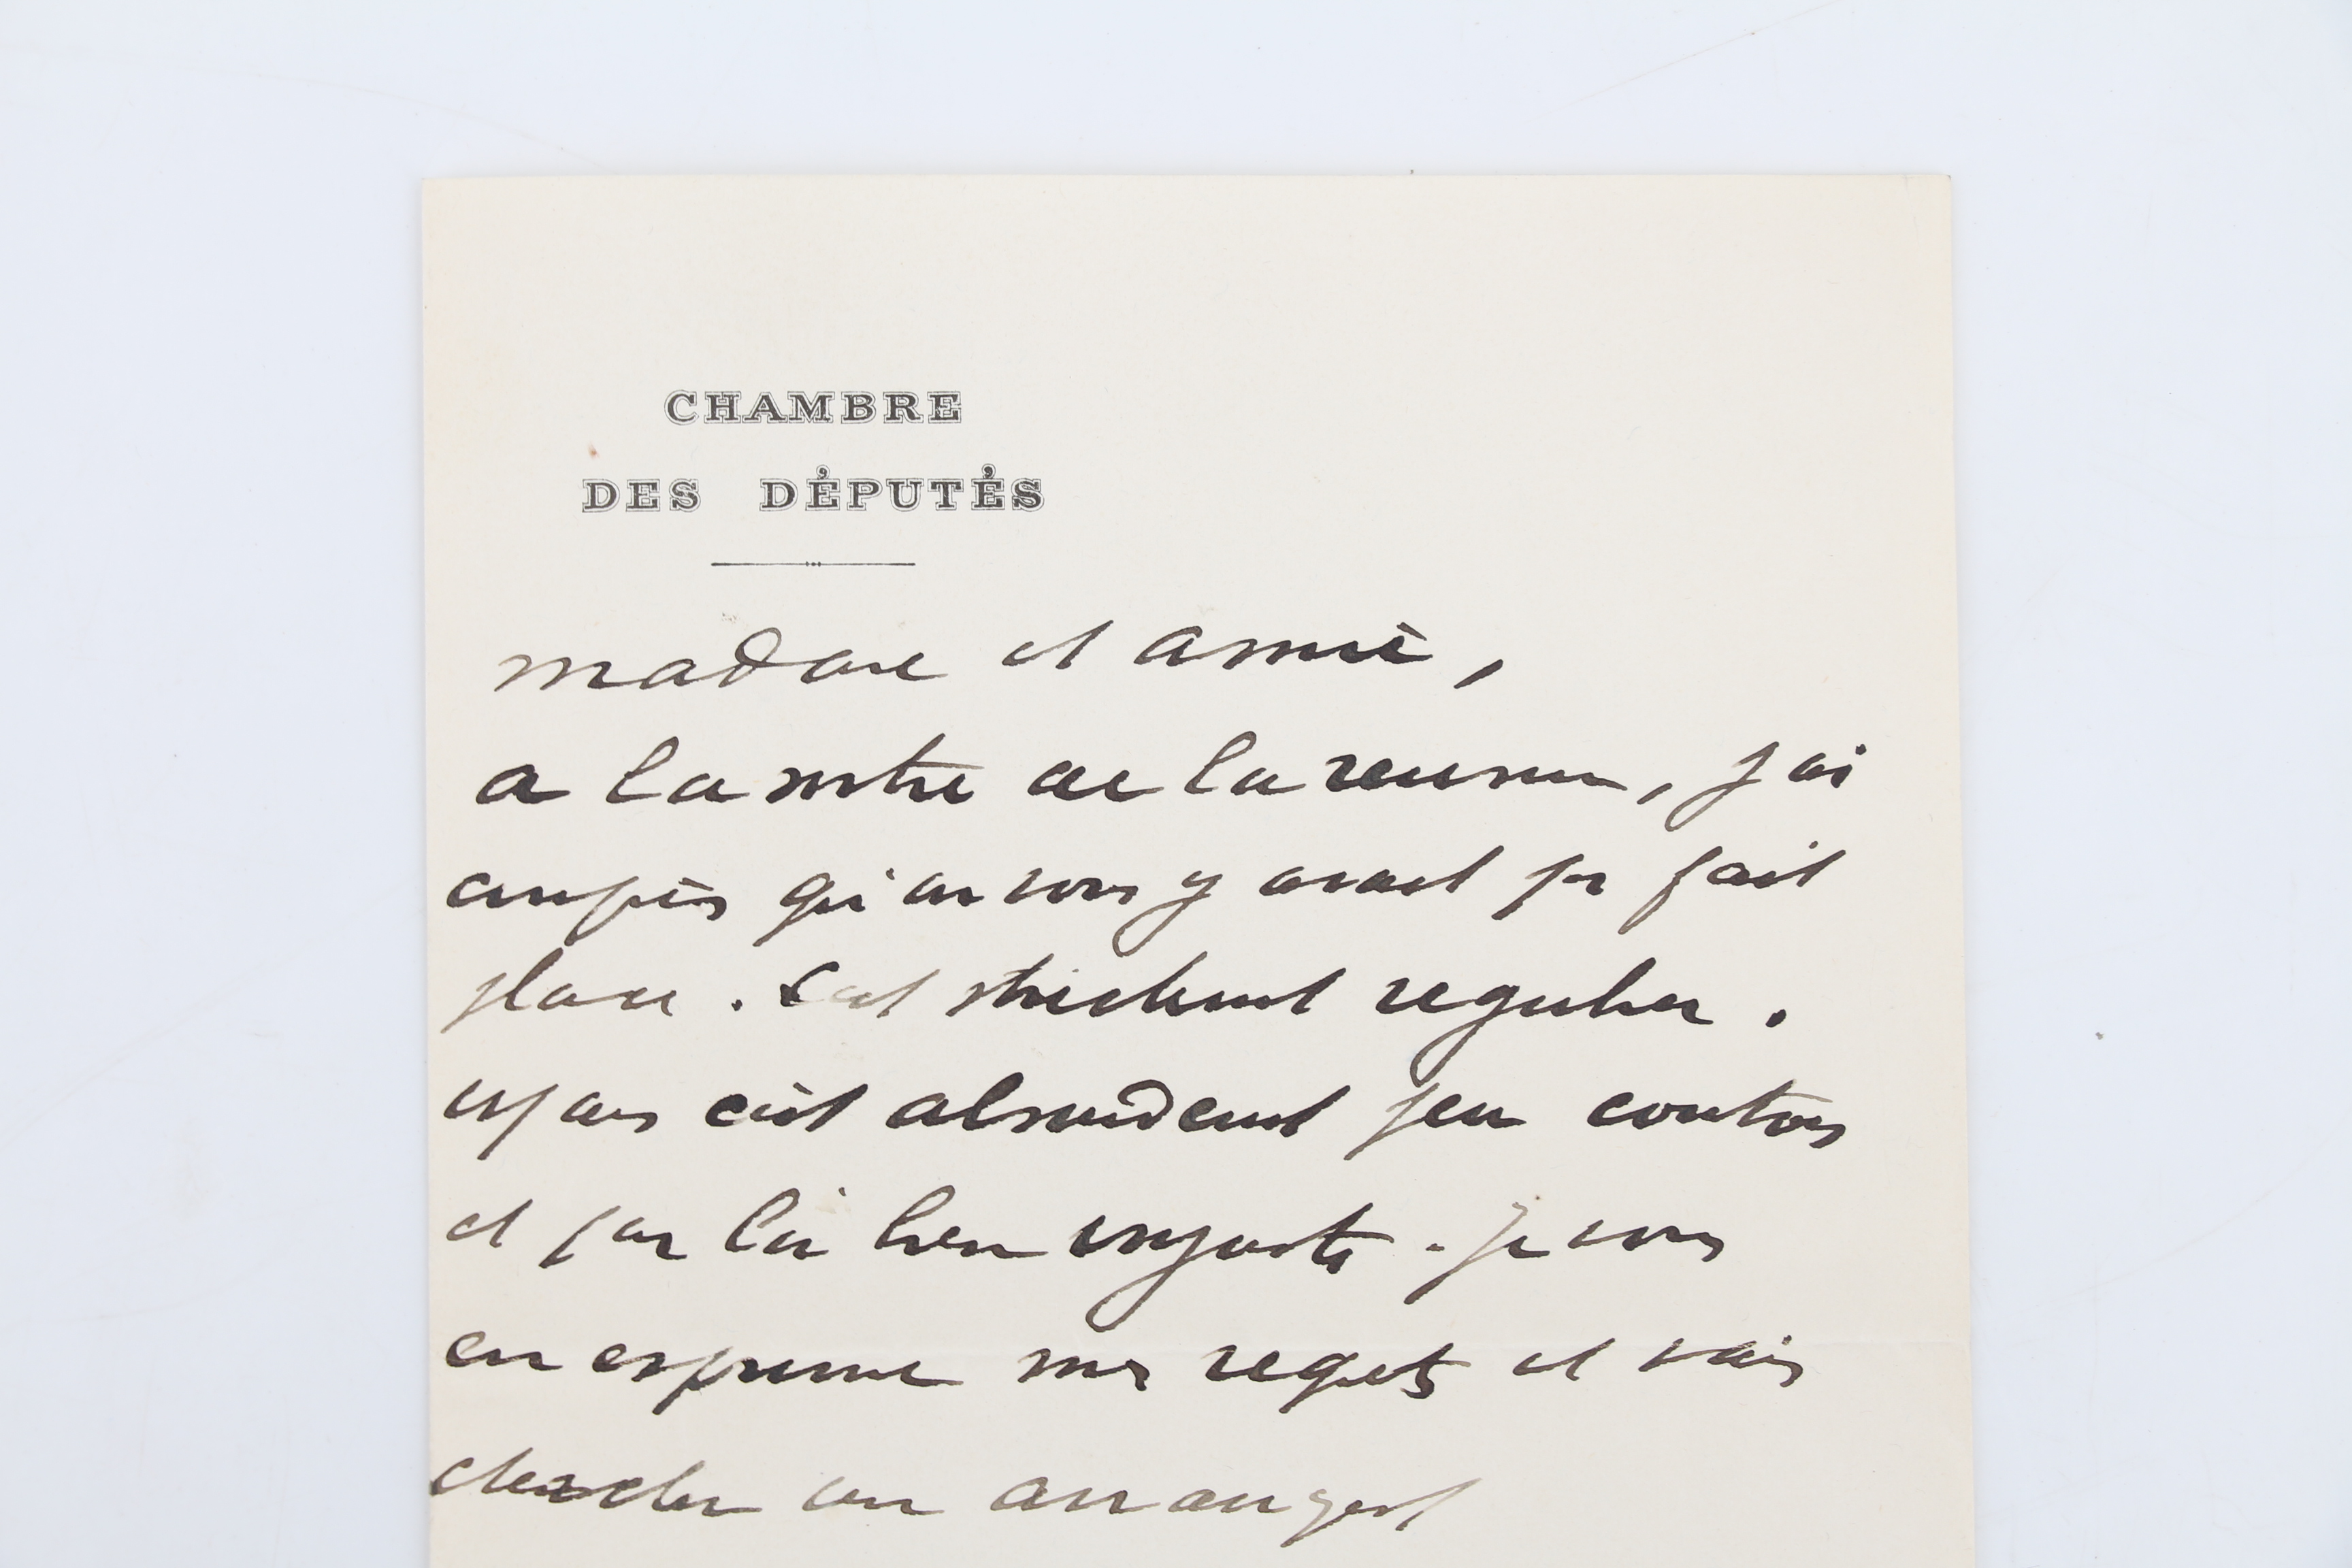 CHAMBRE
DES DÉPUTÉS
madame et amie,
a la sortie de la reunion, j'ai
qu'on vous y avait pr fait
place. C'est strictement regulier.
c'est absurdement peu courtois
et par là bien injuste. Je vous
en exprime mes regrets et vais
chercher un arrangt